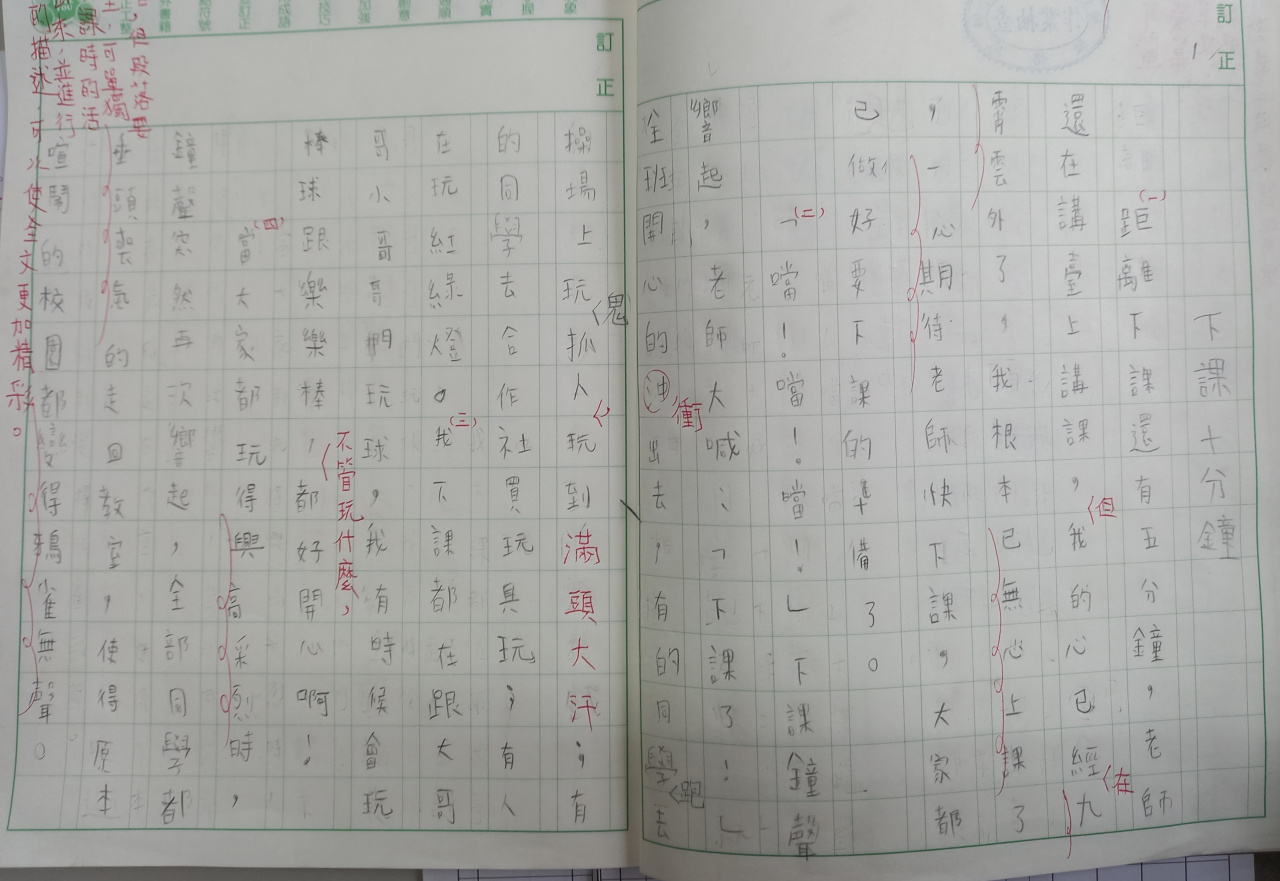 訂正
下課十分鐘
(一)
距離下課還有五分鐘，老師
還在講臺上講課，我的心已經九
但
在
霄雲外了，我根本已無心上課了
，一心期待老師快下課，大家都
已做好要下課的準備了。
(二)
「噹！噹！噹！」下課鐘聲
響起，老師大喊：「下課了！」
全班開心的沖出去，有的同學去
衝
跑
訂正
操場上玩抓人玩到滿頭大汗；有
鬼
的同學去合作社買玩具玩；有人
在玩紅綠燈。我下課都在跟大哥
(三)
哥小哥哥們玩球，我有時候會玩
棒球跟樂樂棒，都好開心啊！
不管玩什麼，
(四)
當大家都玩得興高采烈時，
鐘聲突然再次響起，全部同學都
垂頭喪氣的走回教室，使得原本
喧鬧的校園都變得鴉雀無聲。
，但段落要
可單獨
課時的活
並進行
的描述，可以使全文更加精彩。